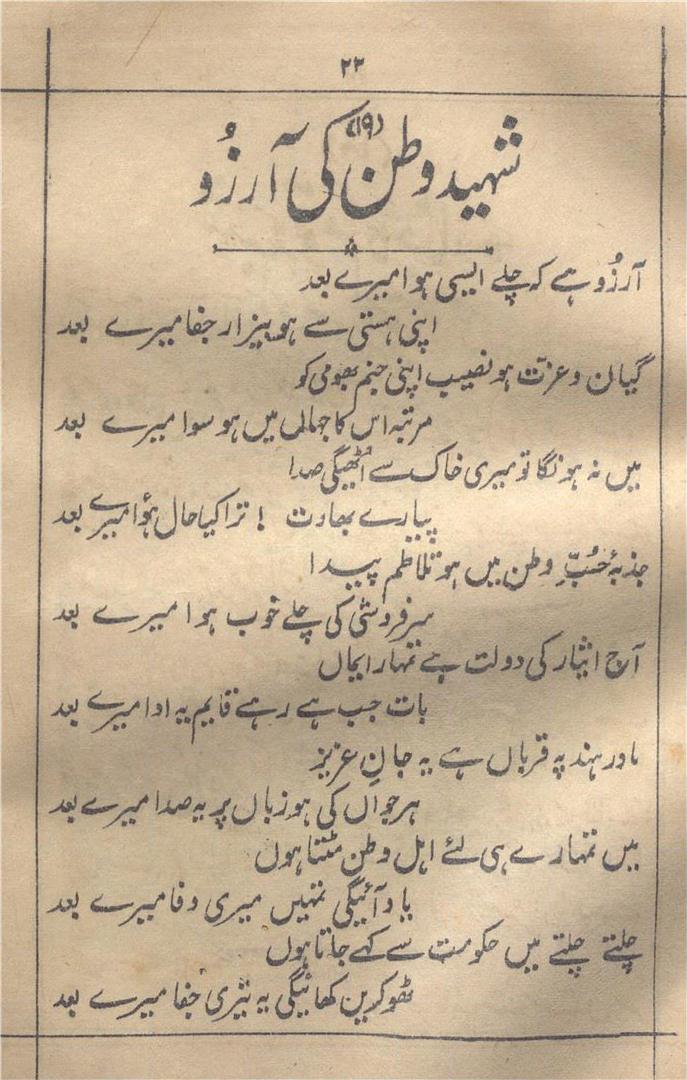 ۲۲
(۱۹)
شہید وطن کی آرزُو
آرزُو ہے کہ چلے ایسی ہوا میرے بعد
اپنی ہستی سے ہو بیزار جفا میرے بعد
گیان و عزّت ہو نصیب اپنی جنم بھومی کو
مرتبہ اس کا جہاں میں ہو سوا میرے بعد
میں نہ ہونگا تو میری خاک سے اُٹھیگی صدا
پیارے بھارت ! ترا کیا حال ہؤا میرے بعد
جذبۂ حُبِّ وطن میں ہو تلاطم پیدا
سرفروشی کی چلے خوب ہوا میرے بعد
آج ایثار کی دولت ہے تمہارا ایماں
بات جب ہے رہے قایم یہ ادا میرے بعد
مادر ہند پہ قرباں ہے یہ جانِ عزیز
ہر جواں کی ہو زباں پر یہ صدا میرے بعد
میں تمہارے ہی لئے اہل وطن مٹتا ہوں
یاد آئیگی تمہیں میری وفا میرے بعد
چلتے چلتے میں حکومت سے کہے جاتا ہوں
ٹھوکریں کھائیگی یہ تیری جفا میرے بعد